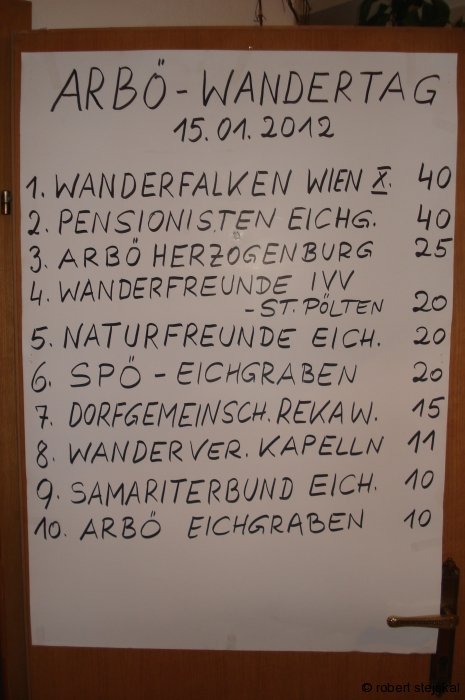 ARBÖ - WANDERTAG
15.01.2012
1. WANDERFALKEN WIEN X. 40
2. PENSIONISTEN EICHG. 40
3. ARBÖ HERZOGENBURG 25
4. WANDERFREUNDE IVV
- ST. PÖLTEN 20
5. NATURFREUNDE EICH. 20
6. SPÖ - EICHGRABEN 20
7. DORFGEMEINSCH. REKAW. 15
8. WANDERVER. KAPELLN 11
9. SAMARITERBUND EICH. 10
10. ARBÖ EICHGRABEN 10
© robert stejskal